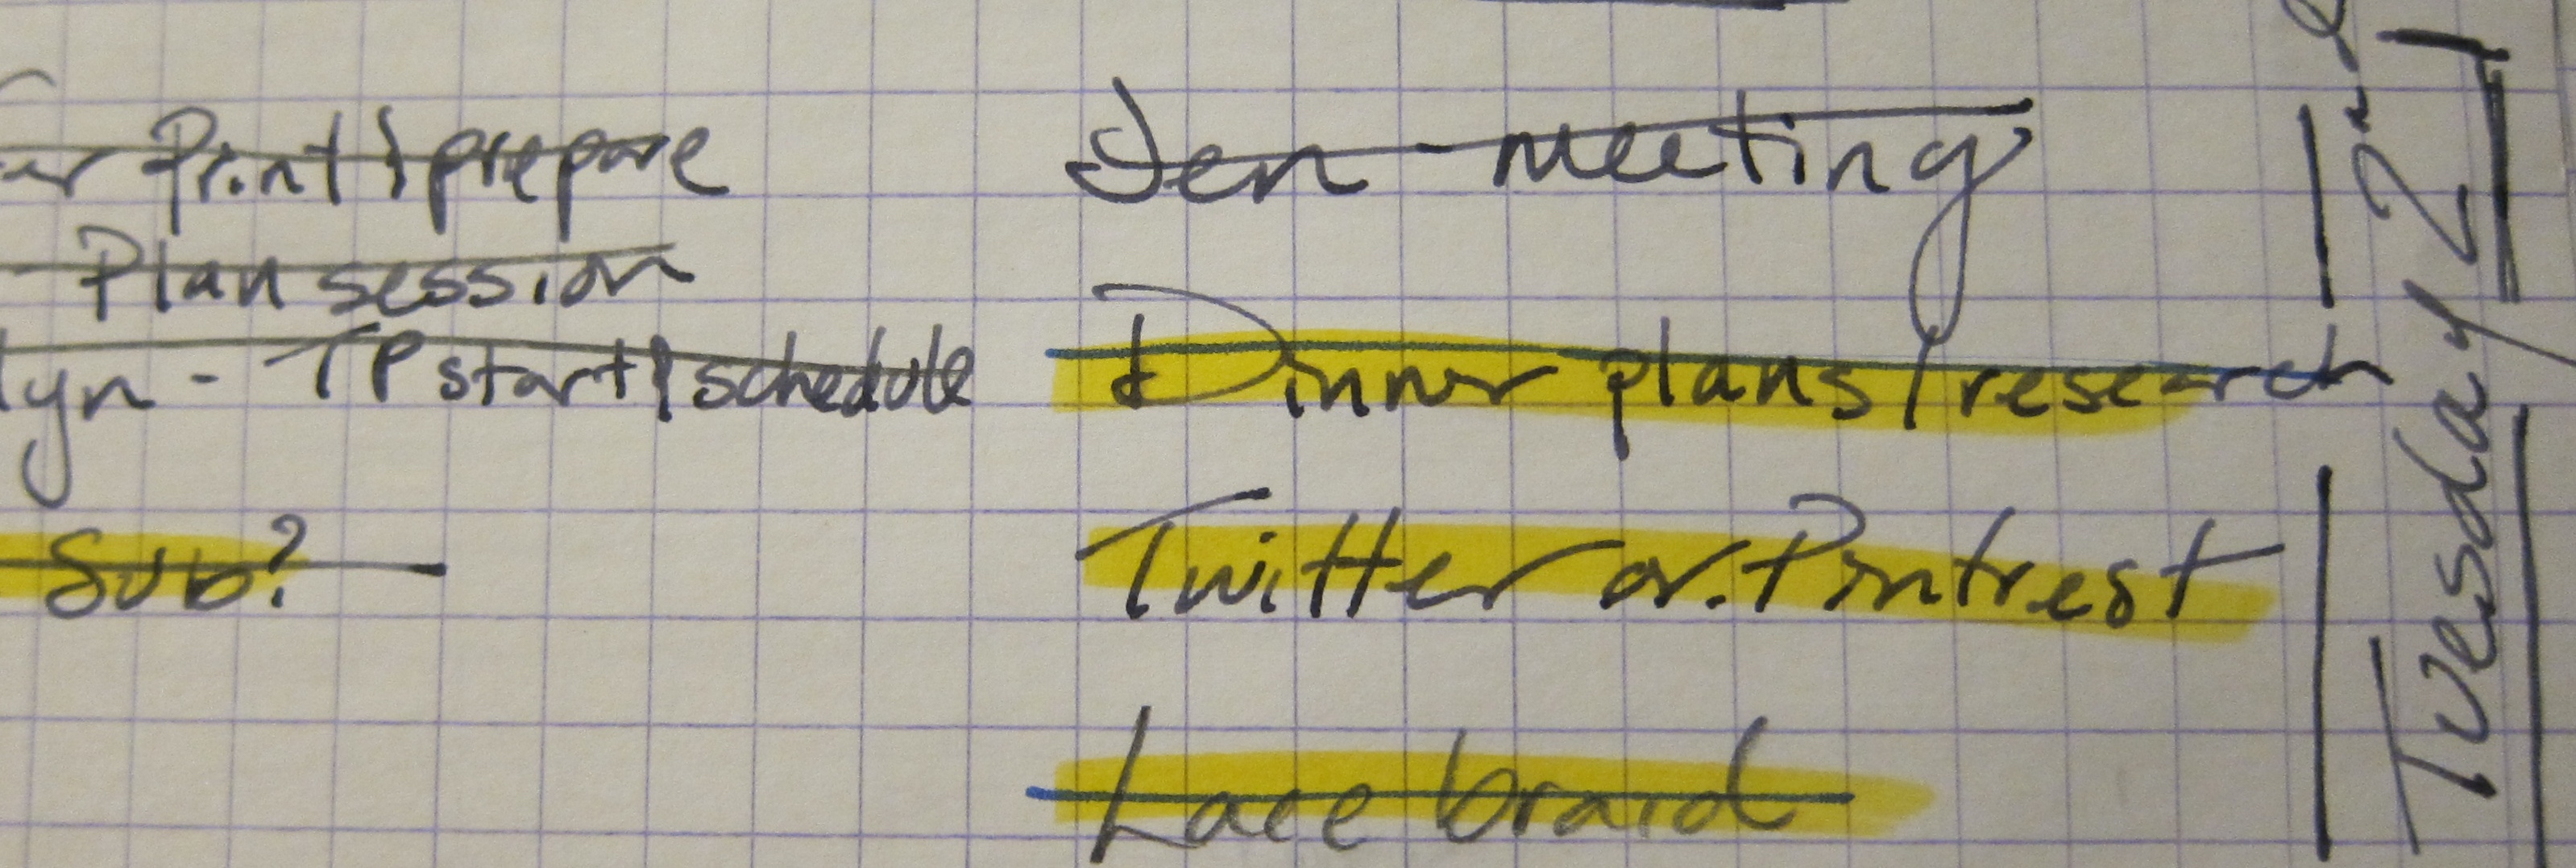 Print & prepare
Plan session
lyn - TP start & schedule
Sub?
Jen - meeting
Dinner plans / research
Twitter or Pintrest
Lace braid
Tuesday